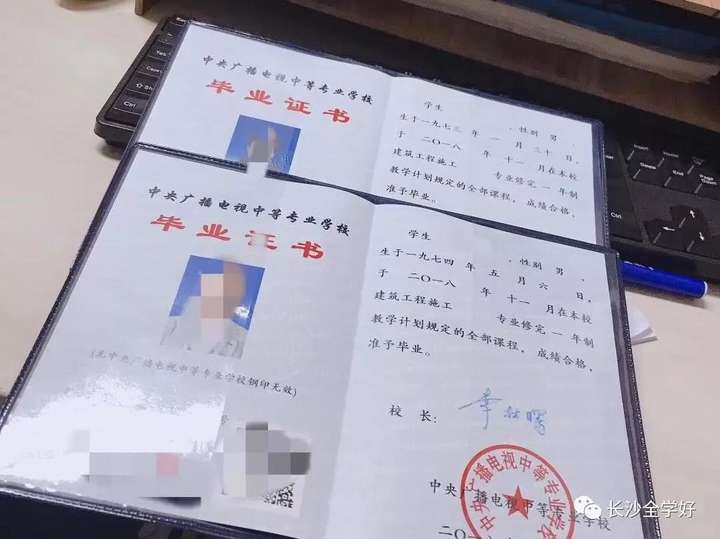 中央广播电视中等专业学校
毕业证书
学生 ，性别 男 ，
生于一九七三 年 一 月 三十 日，
于 二〇一八 年 十一 月在本校
建筑工程施工 专业修完 一 年制
教学计划规定的全部课程，成绩合格，
准予毕业。
中央广播电视中等专业学校
毕业证书
(无中央广播电视中等专业学校钢印无效)
学生 ，性别 男 ，
生于一九七四 年 五 月 六 日，
于 二〇一八 年 十一 月在本校
建筑工程施工 专业修完 一 年制
教学计划规定的全部课程，成绩合格，
准予毕业。
校 长：
中央广播电视中等专业学校
中央广播电视中等专业学校
二〇一
长沙全学好